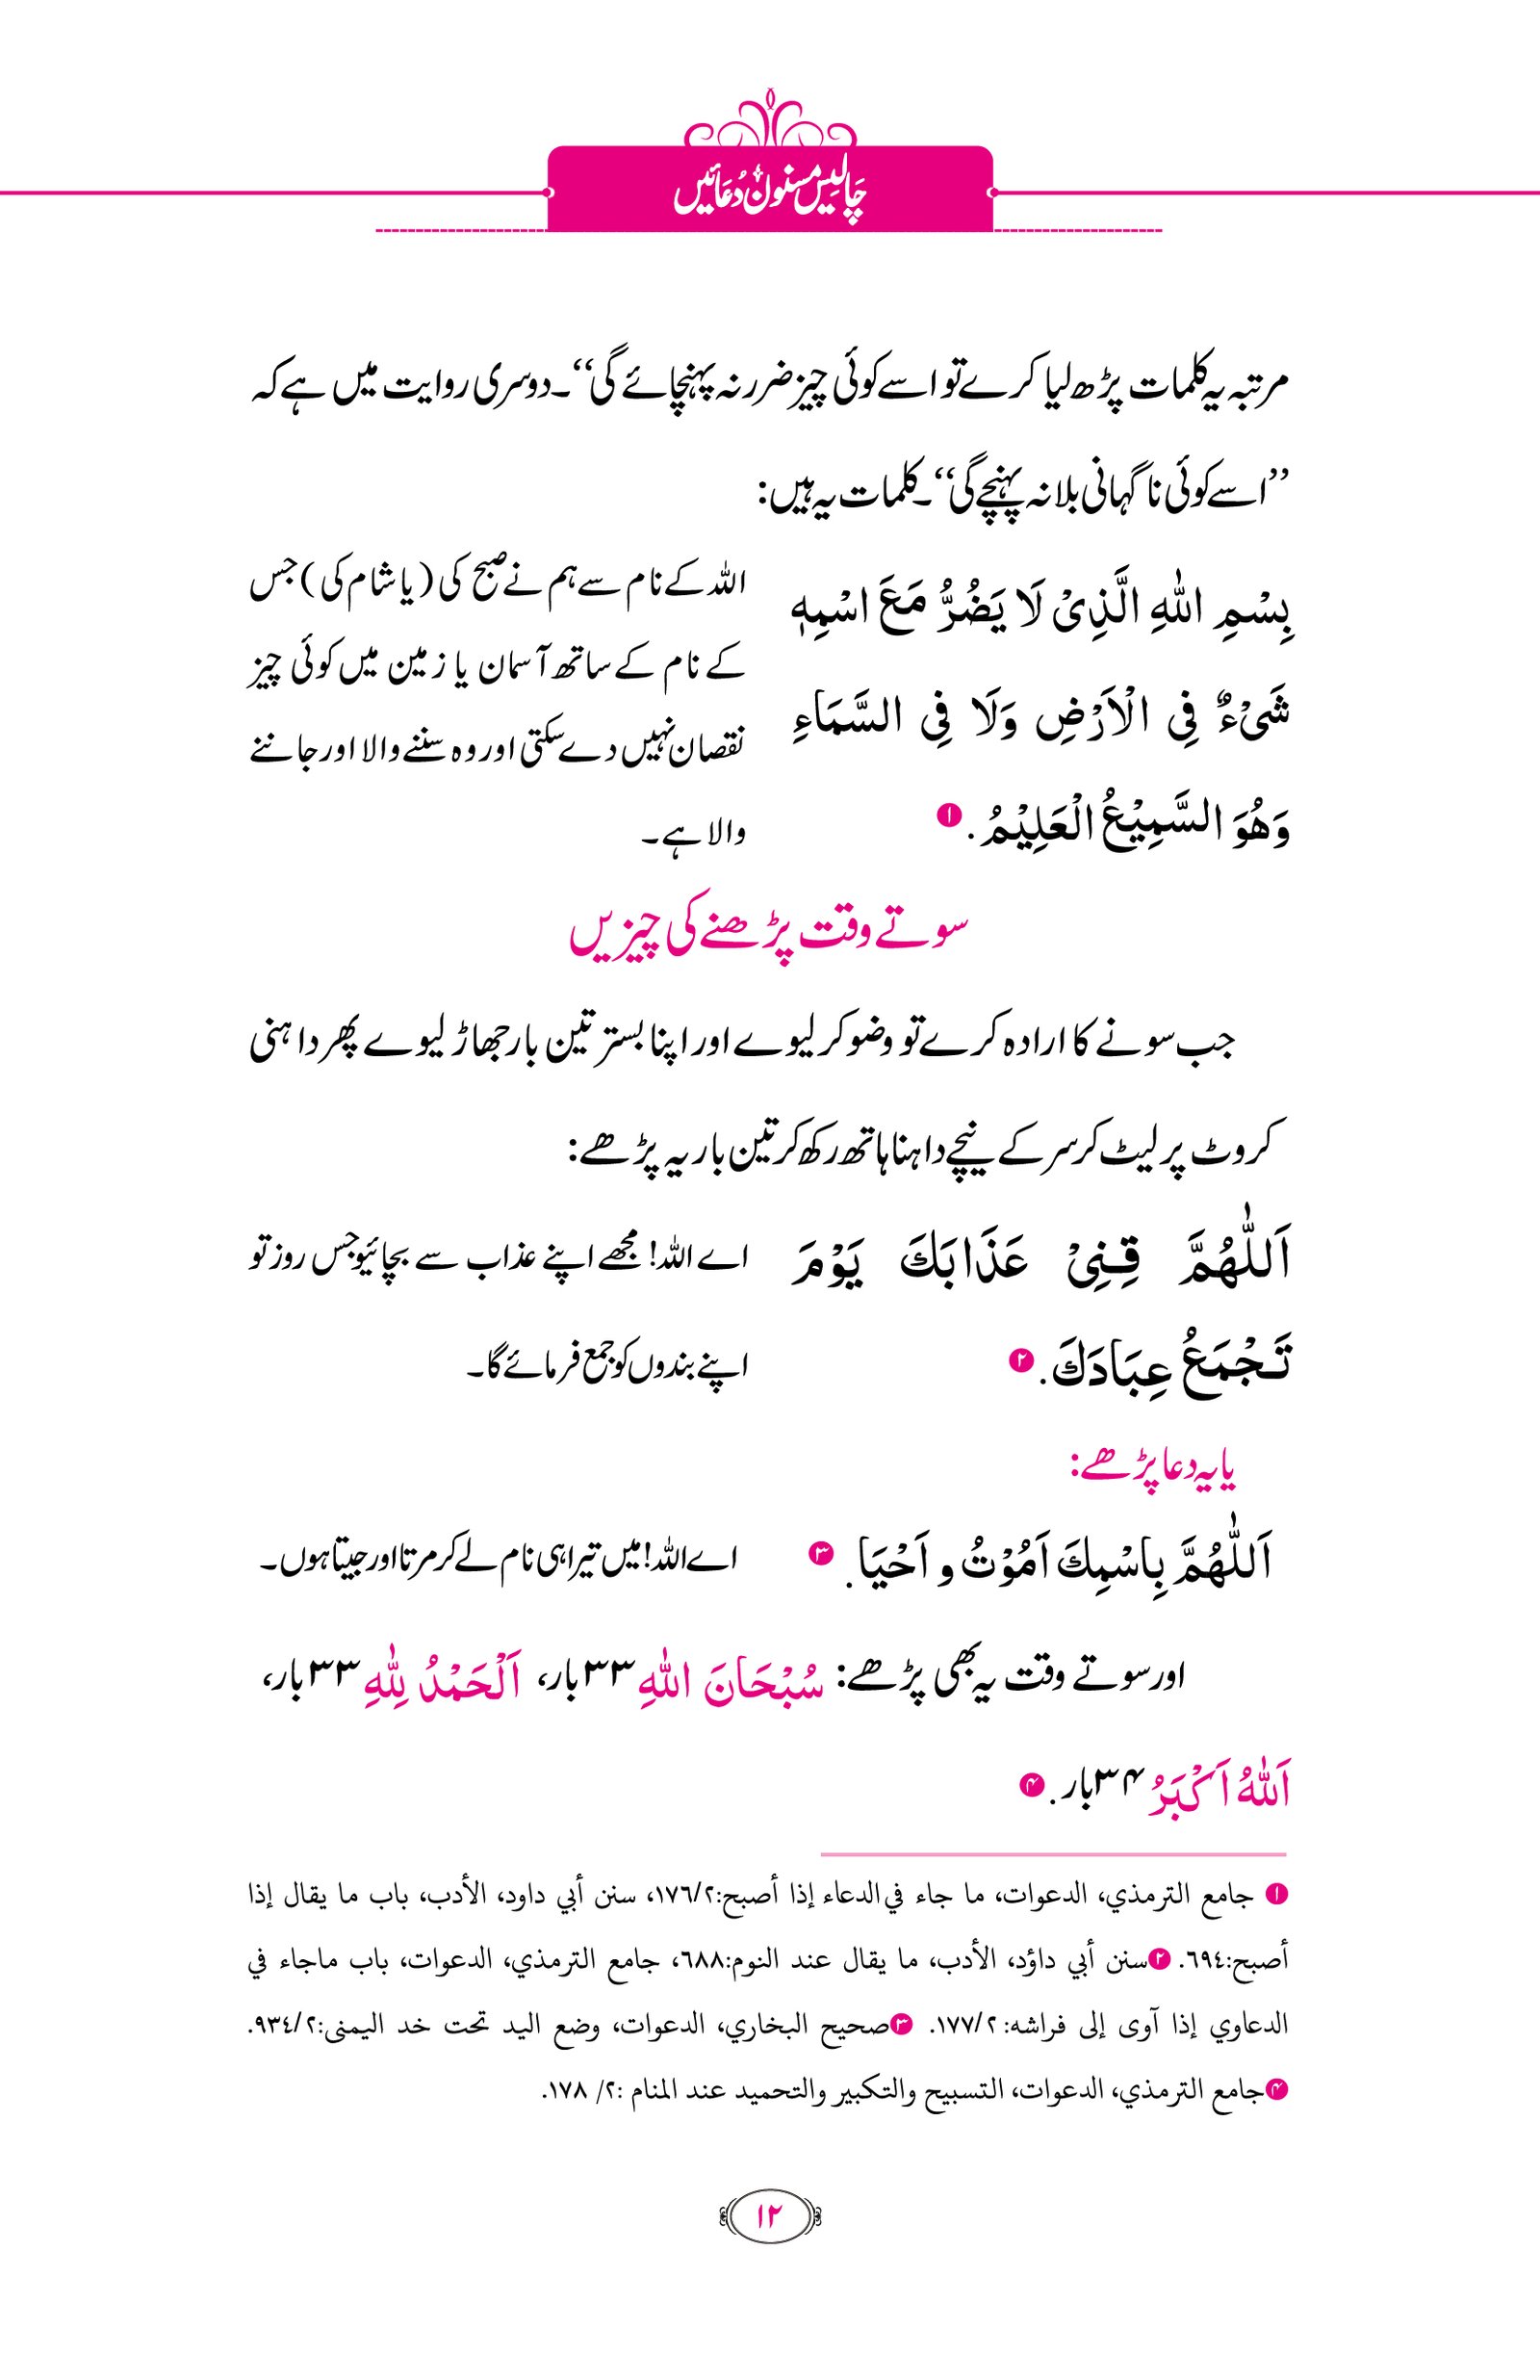 چالیس مسنون دُعائیں
مرتبہ یہ کلمات پڑھ لیا کرے تو اسے کوئی چیز ضرر نہ پہنچائے گی‘‘۔ دوسری روایت میں ہے کہ
’’اسے کوئی ناگہانی بلا نہ پہنچے گی‘‘۔ کلمات یہ ہیں:
بِسْمِ اللّٰهِ الَّذِىْ لَا يَضُرُّ مَعَ اسْمِهٖ
شَىْءٌ فِى الْاَرْضِ وَلَا فِى السَّمَاءِ
وَهُوَ السَّمِيْعُ الْعَلِيْمُ. ❶
اللہ کے نام سے ہم نے صبح کی (یا شام کی) جس
کے نام کے ساتھ آسمان یا زمین میں کوئی چیز
نقصان نہیں دے سکتی اور وہ سننے والا اور جاننے
والا ہے۔
سوتے وقت پڑھنے کی چیزیں
جب سونے کا ارادہ کرے تو وضو کر لیوے اور اپنا بستر تین بار جھاڑ لیوے پھر داہنی
کروٹ پر لیٹ کر سر کے نیچے داہنا ہاتھ رکھ کر تین بار یہ پڑھے:
اَللّٰهُمَّ قِنِىْ عَذَابَكَ يَوْمَ
تَجْمَعُ عِبَادَكَ. ❷
اے اللہ! مجھے اپنے عذاب سے بچائیو جس روز تو
اپنے بندوں کو جمع فرمائے گا۔
یا یہ دعا پڑھے:
اَللّٰهُمَّ بِاسْمِكَ اَمُوْتُ و اَحْيَا. ❸
اے اللہ! میں تیرا ہی نام لے کر مرتا اور جیتا ہوں۔
اور سوتے وقت یہ بھی پڑھے: سُبْحَانَ اللّٰهِ ۳۳ بار، اَلْحَمْدُ لِلّٰهِ ۳۳ بار،
اَللّٰهُ اَكْبَرُ ۳۴ بار. ❹
❶ جامع الترمذي، الدعوات، ما جاء في الدعاء إذا أصبح:١٧٦/٢، سنن أبي داود، الأدب، باب ما يقال إذا
أصبح:٦٩٤. ❷سنن أبي داؤد، الأدب، ما يقال عند النوم:٦٨٨، جامع الترمذي، الدعوات، باب ماجاء في
الدعاوي إذا آوى إلى فراشه: ١٧٧/٢. ❸صحيح البخاري، الدعوات، وضع اليد تحت خد اليمنى:٩٣٤/٢.
❹جامع الترمذي، الدعوات، التسبيح والتكبير والتحميد عند المنام :٢/ ١٧٨.
۱۲